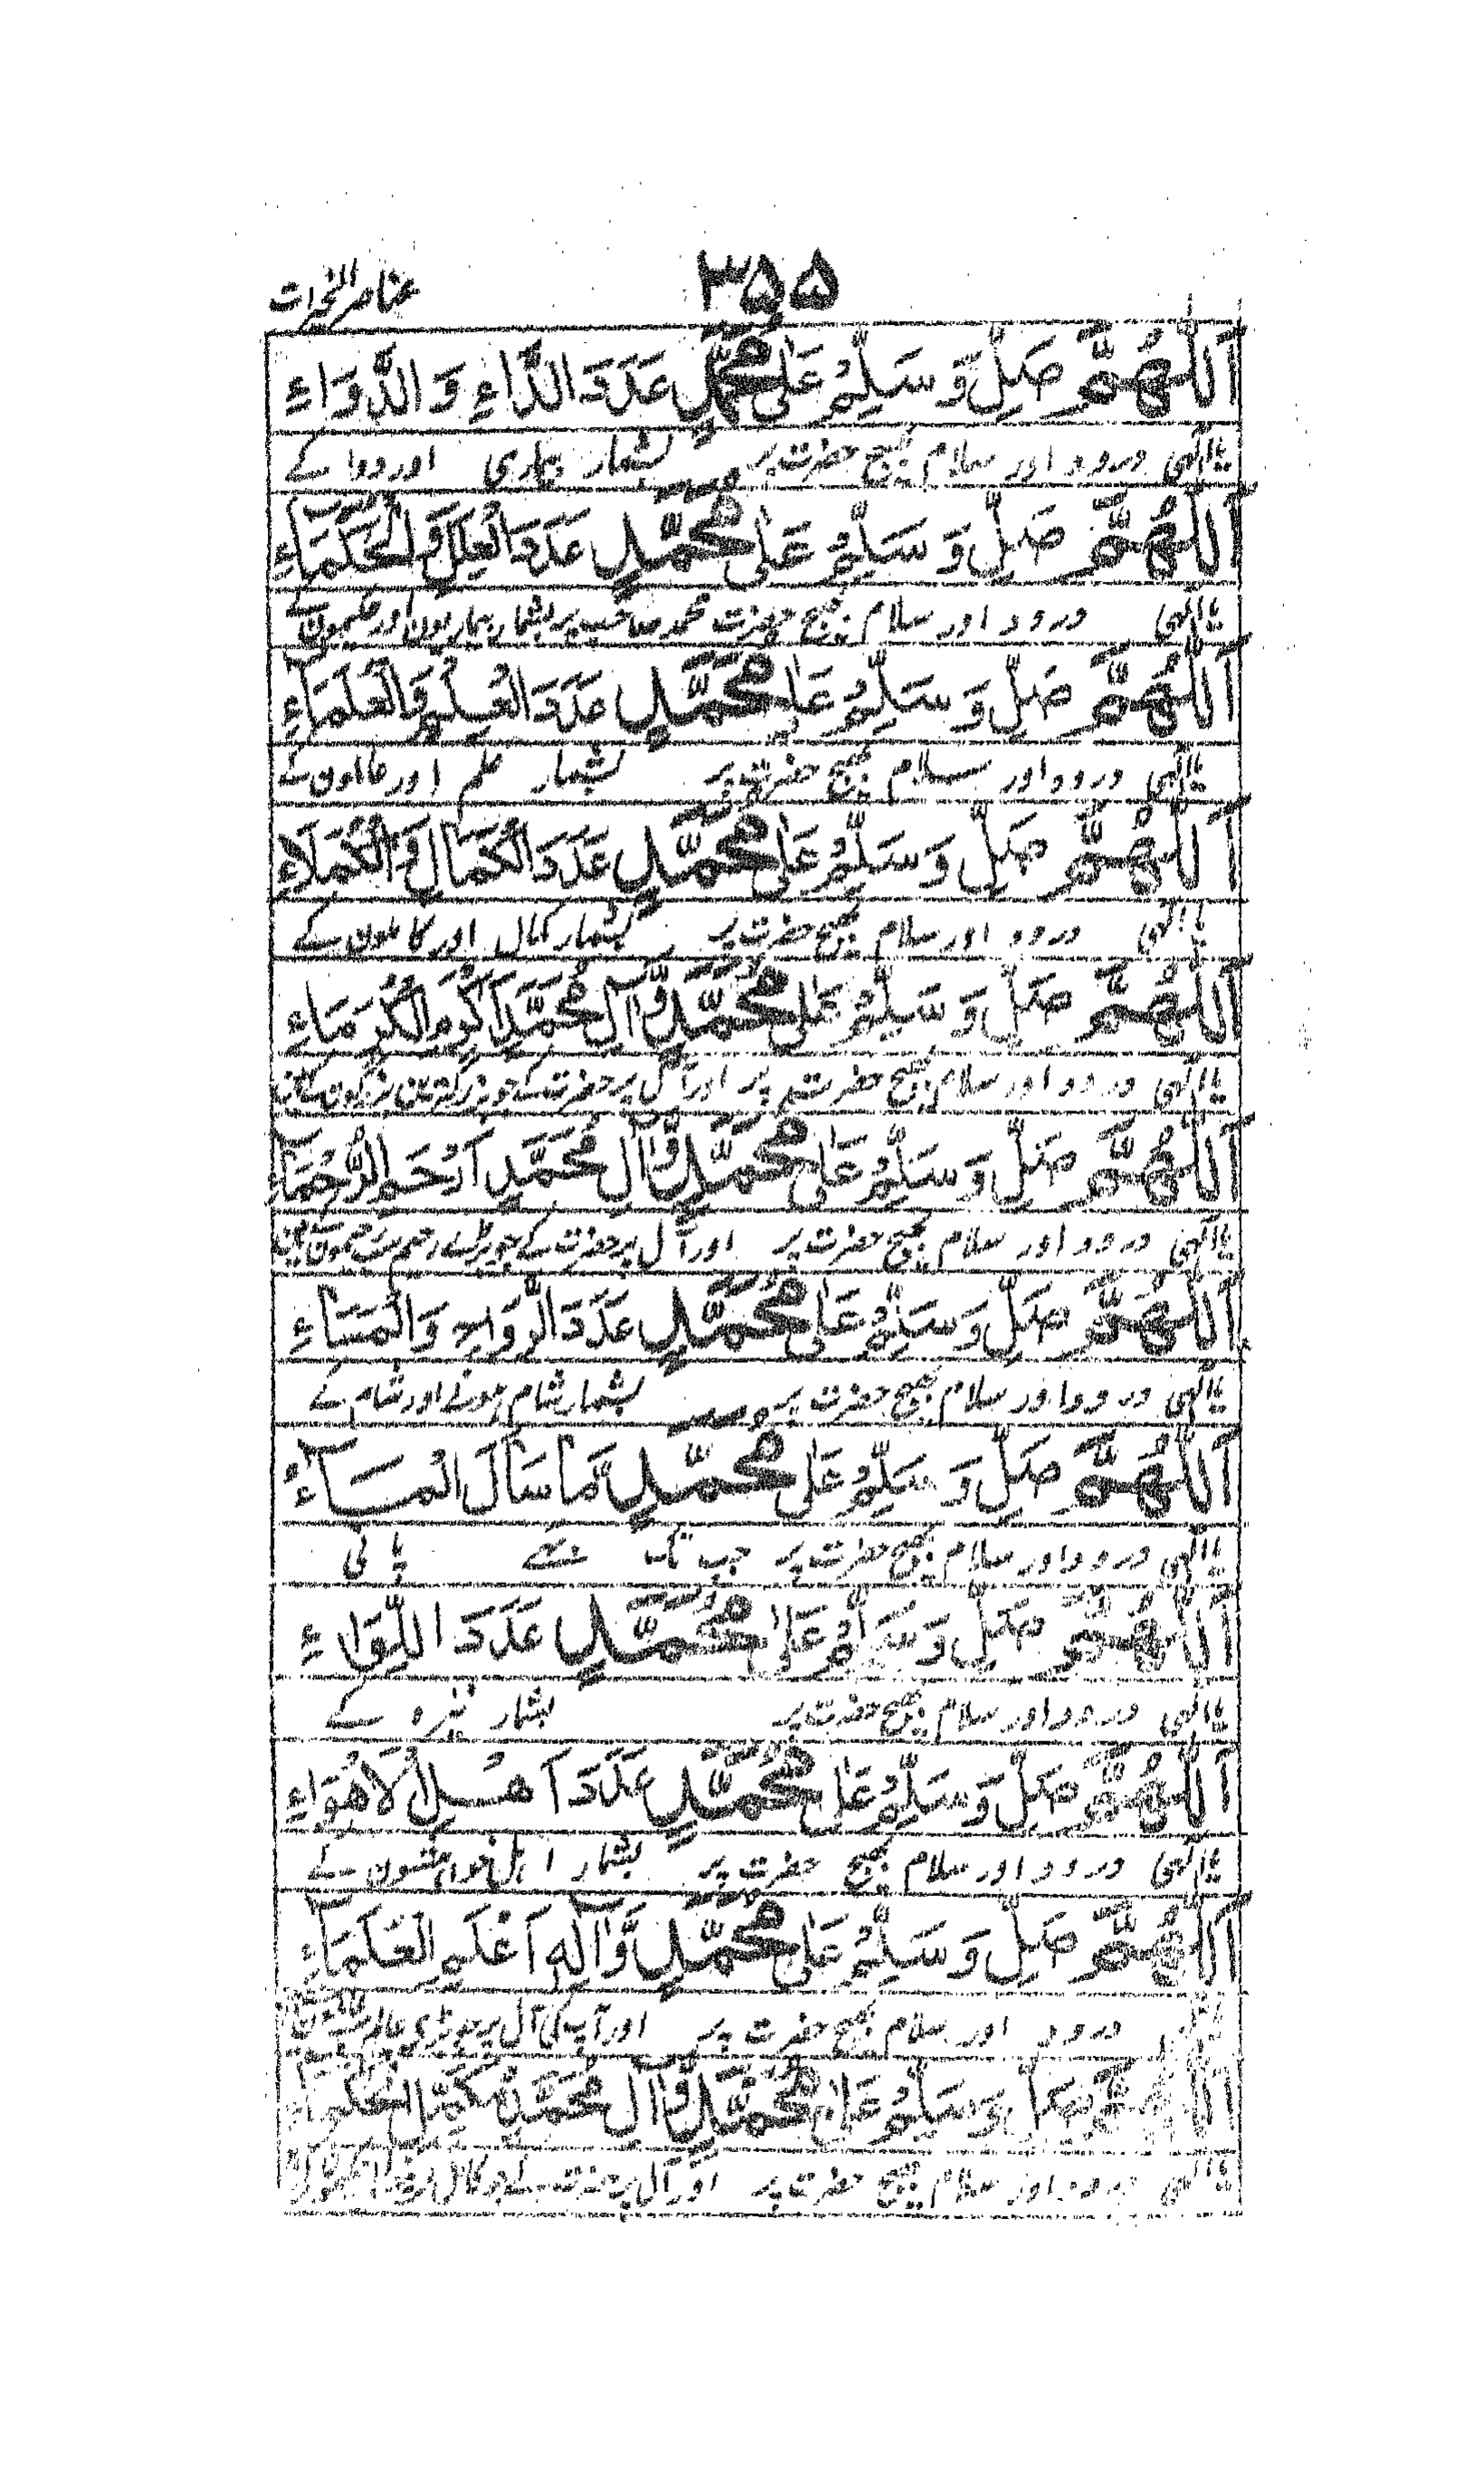 ۳۵۵
عناصر الخیرات
اَللّٰهُمَّ صَلِّ وَسَلِّمْ عَلٰى مُحَمَّدٍ عَدَدَ الدَّاءِ وَالدَّوَاءِ
یا الٰہی درود اور سلام بھیج حضرت پر بشمار بیماری اور دوا کے
اَللّٰهُمَّ صَلِّ وَسَلِّمْ عَلٰى مُحَمَّدٍ عَدَدَ وَالْحُكَمَاءِ
یا الٰہی درود اور سلام بھیج حضرت محمد صاحب پر بشمار بیماریون اور حکیمون کے
اَللّٰهُمَّ صَلِّ وَسَلِّمْ عَلٰى مُحَمَّدٍ عَدَدَ الْعِلْمِ وَالْعُلَمَاءِ
یا الٰہی درود اور سلام بھیج حضرت پر بشمار علم اور عالمون کے
اَللّٰهُمَّ صَلِّ وَسَلِّمْ عَلٰى مُحَمَّدٍ عَدَدَ الْكَمَالِ وَالْكُمَلَاءِ
یا الٰہی درود اور سلام بھیج حضرت پر بشمار کمال اور کاملون کے
اَللّٰهُمَّ صَلِّ وَسَلِّمْ عَلٰى مُحَمَّدٍ وَّآلِ مُحَمَّدٍ اَكْرَمِ الْكُرَمَاءِ
یا الٰہی درود اور سلام بھیج حضرت پر اور آل پر حضرت کے جو
اَللّٰهُمَّ صَلِّ وَسَلِّمْ عَلٰى مُحَمَّدٍ وَّآلِ مُحَمَّدٍ اَرْحَمِ الرُّحَمَاءِ
یا الٰہی درود اور سلام بھیج حضرت پر اور آل پر حضرت کے جو بڑے رحیم
اَللّٰهُمَّ صَلِّ وَسَلِّمْ عَلٰى مُحَمَّدٍ عَدَدَ الرَّوَاحِ وَالْمَسَاءِ
یا الٰہی درود اور سلام بھیج حضرت پر بشمار شام ہونے اور شام کے
اَللّٰهُمَّ صَلِّ وَسَلِّمْ عَلٰى مُحَمَّدٍ مَّا سَالَ الْمَاءُ
یا الٰہی درود اور سلام بھیج حضرت پر جب تک بہے پانی
اَللّٰهُمَّ صَلِّ وَسَلِّمْ عَلٰى مُحَمَّدٍ عَدَدَ اللِّوَاءِ
یا الٰہی درود اور سلام بھیج حضرت پر بشمار نیزہ کے
اَللّٰهُمَّ صَلِّ وَسَلِّمْ عَلٰى مُحَمَّدٍ عَدَدَ اَهْلِ الْاَهْوَاءِ
یا الٰہی درود اور سلام بھیج حضرت پر بشمار اہل خواہشون کے
اَللّٰهُمَّ صَلِّ وَسَلِّمْ عَلٰى مُحَمَّدٍ وَّآلِهٖ اَعْلَمِ الْعُلَمَاءِ
درود اور سلام بھیج حضرت پر اور آپ کی آل پر جو بڑی عالم
اَللّٰهُمَّ صَلِّ وَسَلِّمْ عَلٰى مُحَمَّدٍ وَّآلِ مُحَمَّدٍ
یا الٰہی درود اور سلام بھیج حضرت پر اور آل پر حضرت کے جو